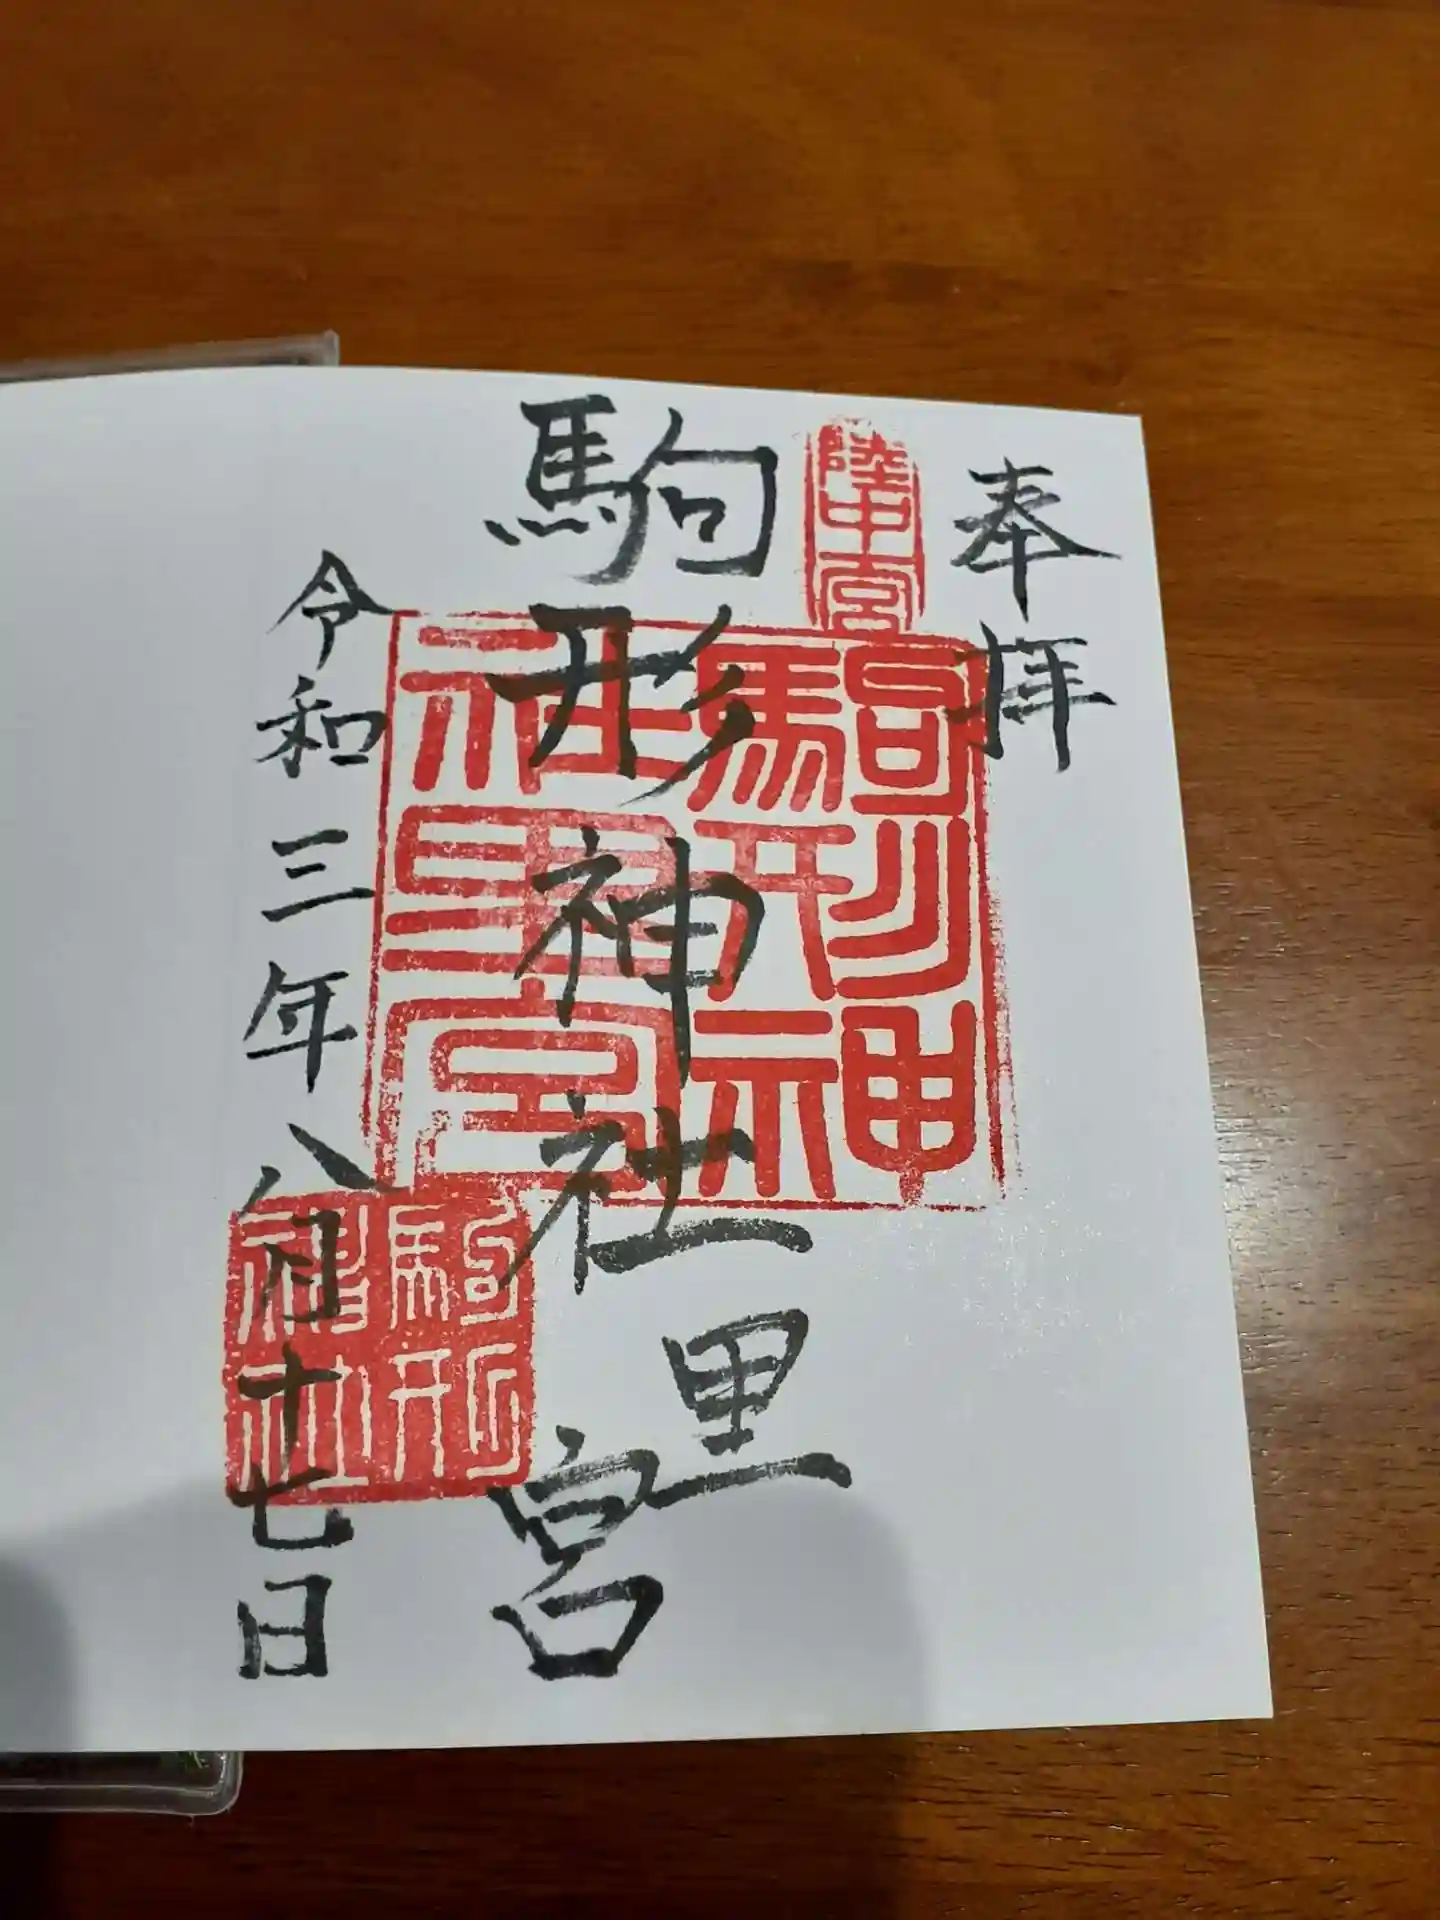 奉拝
陸中一宮
駒形神社里宮
駒形神社里宮
令和三年八月十七日
駒形神社